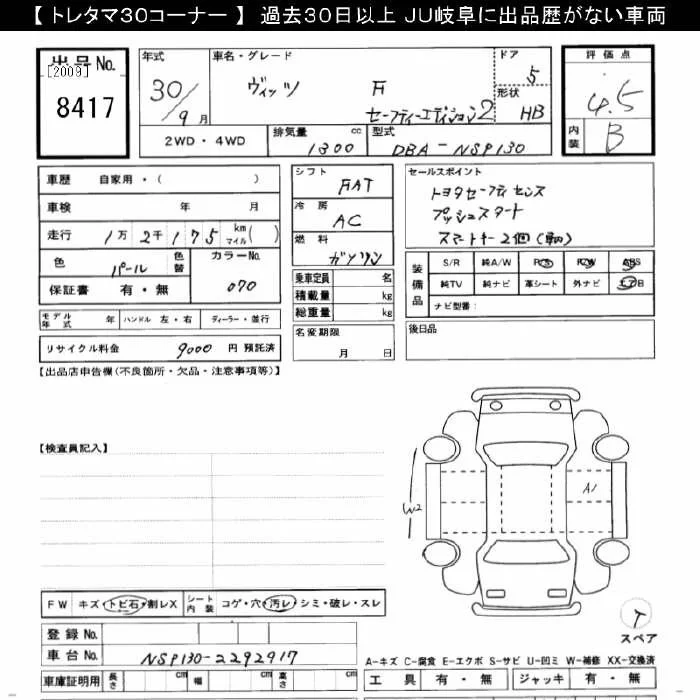 【 トレタマ30コーナー 】 過去30日以上 JU岐阜に出品歴がない車両
出品No.
[2009]
8417
年式
30/9月
車名・グレード
ヴィッツ F
セーフティーエディション2
ドア
5
形状
HB
評価点
4.5
内装
B
2WD・4WD
排気量 cc
1300
型式
DBA-NSP130
車歴 自家用・( )
車検 年 月
走行 1万2千175 km マイル( )
色 パール 色替
カラーNo. 070
保証書 有・無
モデル年式 年 ハンドル 左・右 ディーラー・並行
リサイクル料金 9000 円 預託済
シフト
FAT
冷房
AC
燃料
ガソリン
乗車定員 名
積載量 kg
総重量 kg
名変期限
月 日
セールスポイント
トヨタセーフティセンス
プッシュスタート
スマートキー2個
装備品
S/R 純A/W P/S P/W ABS
純TV 純ナビ 革シート 外ナビ エアB
ナビ型番:
後日品
【出品店申告欄(不良個所・欠品・注意事項等)】
【検査員記入】
W2
A1
FW キズ・トビ石・割レX
シート内装 コゲ・穴・汚レ・シミ・破レ・スレ
登録No.
車台No. NSP130-2292917
車庫証明用 長さ cm 幅 cm 高さ cm
T
スペア
A-キズ C-腐食 E-エクボ S-サビ U-凹ミ W-補修 XX-交換済
工具 有・無 ジャッキ 有・無